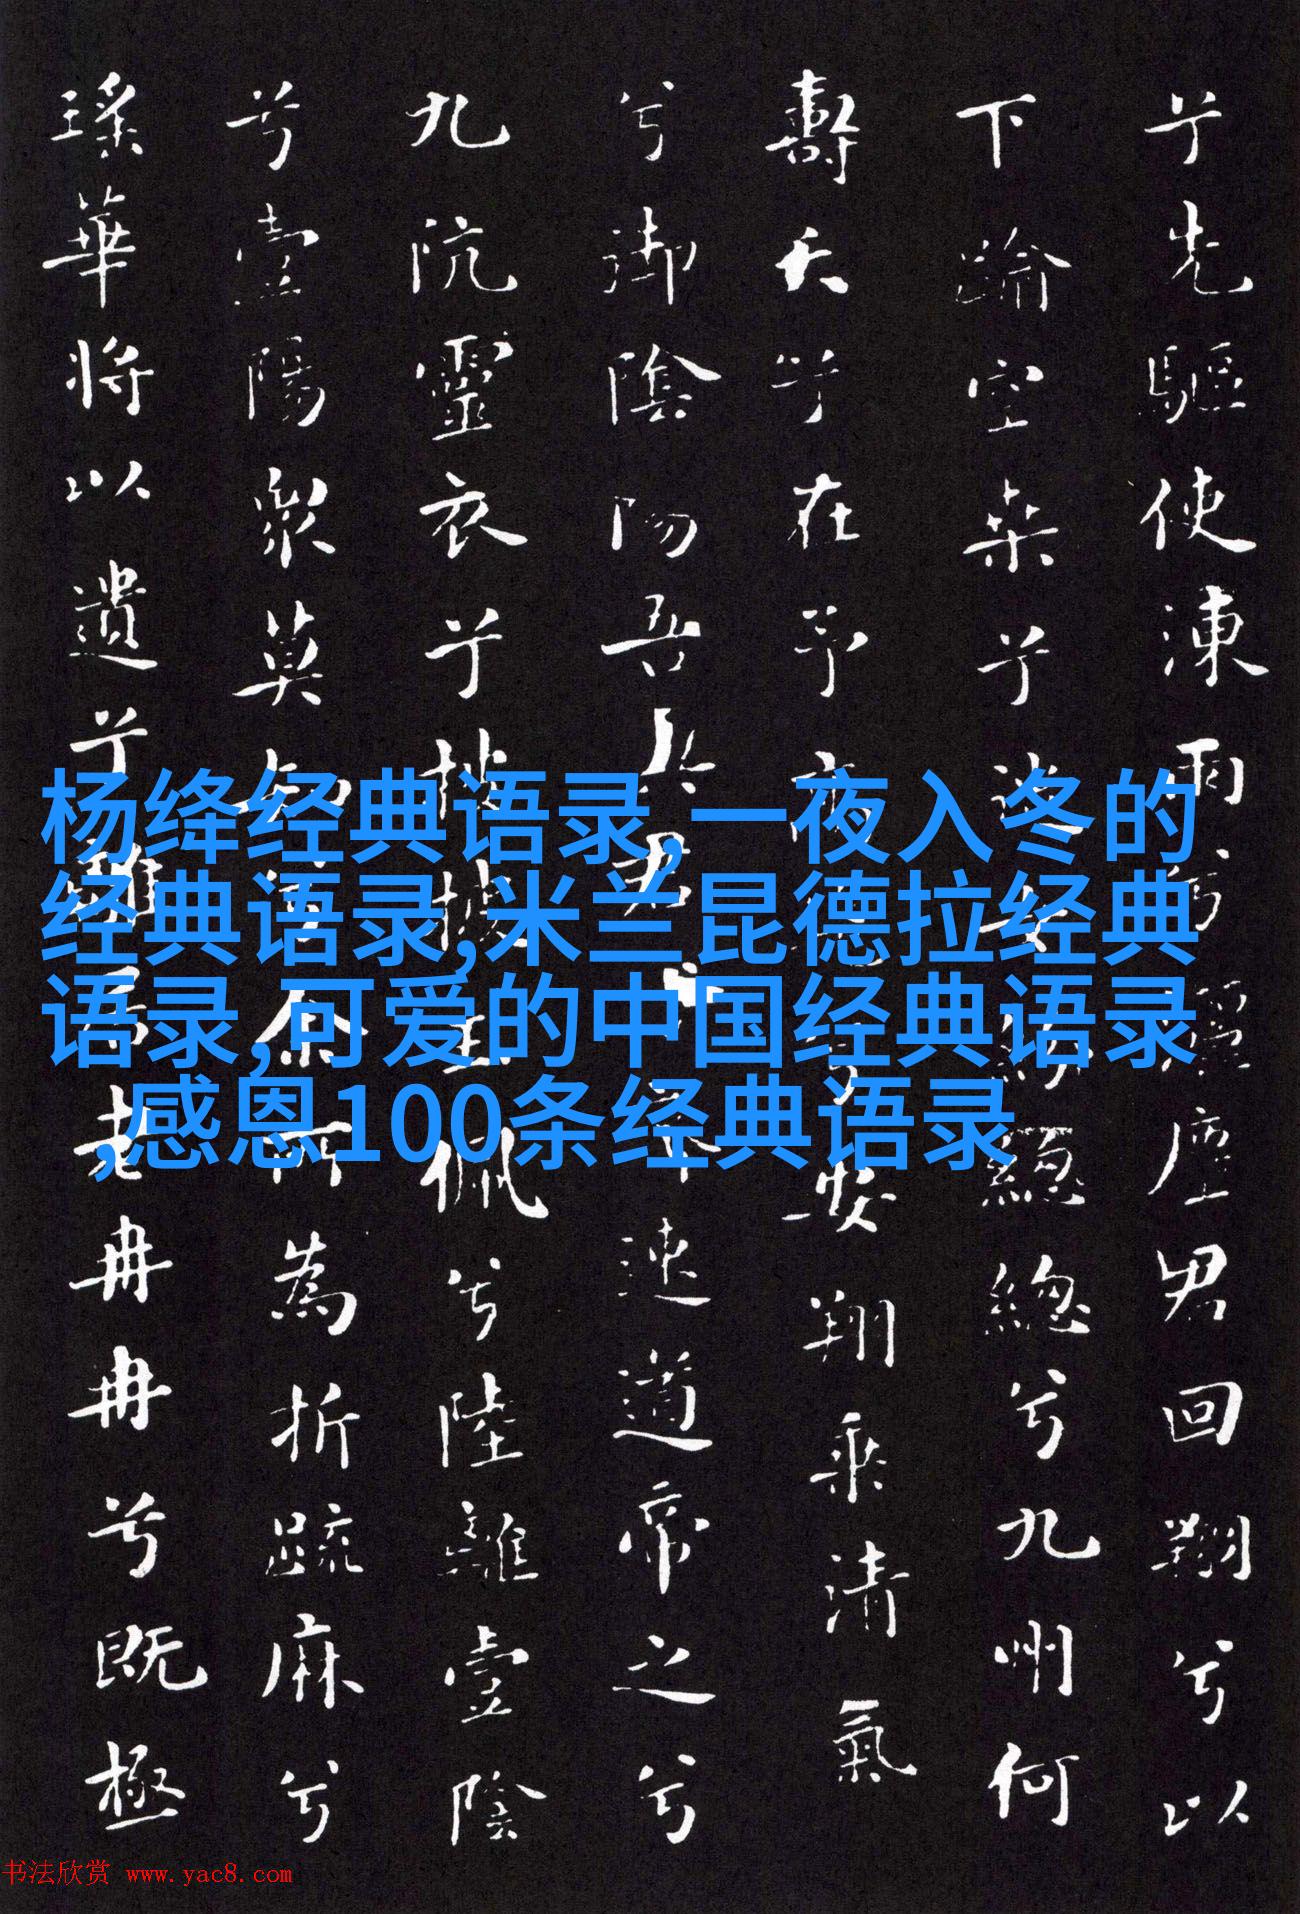 兮先驅使涷雨兮灑塵君回翔兮以
下踰空桒兮從女紛總總兮九州何
壽夭兮在予高飛兮安翔乘清氣
兮御陰陽吾與君兮齊速道帝之兮
九阬靈衣兮披披玉佩兮陸離壹陰
兮壹陽眾莫知兮余所為折疏麻兮
瑤華將以遺兮離居老冉冉兮既極
杨绛经典语录,一夜入冬的
经典语录,米兰昆德拉经典
语录,可爱的中国经典语录
,感恩100条经典语录
书法欣赏 www.yac8.com